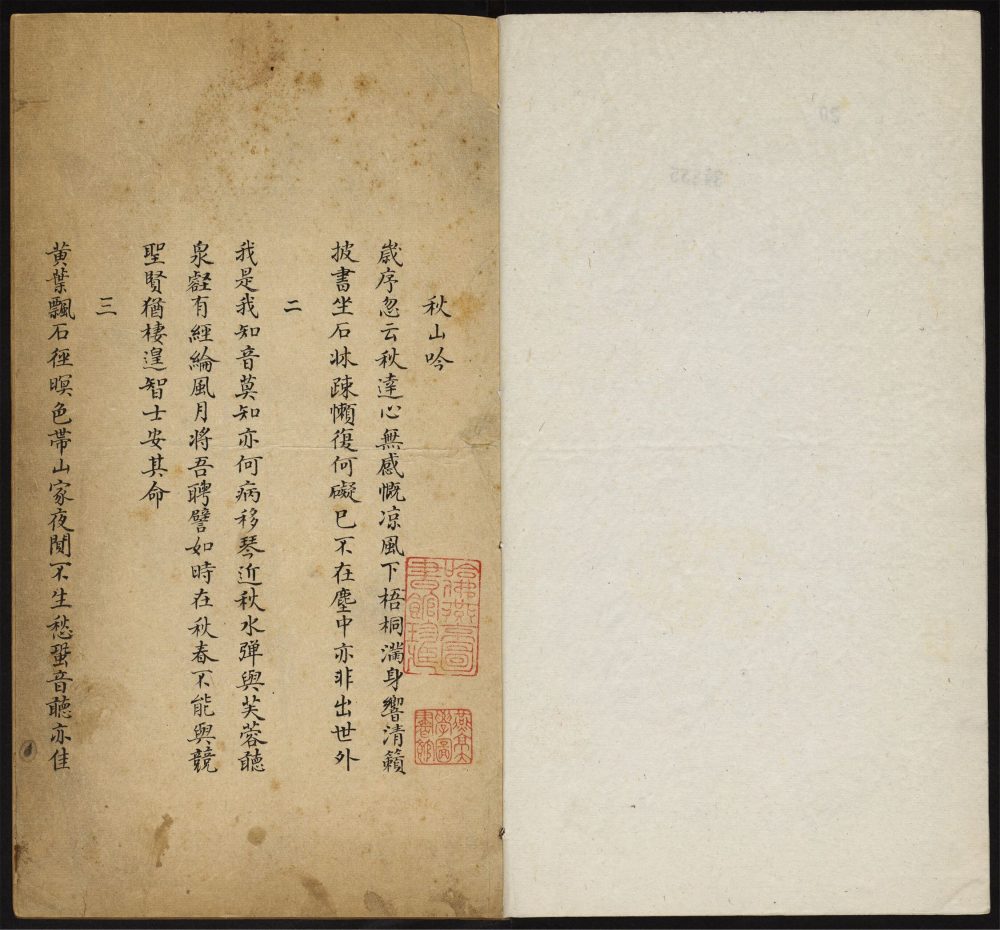 秋山吟
歲序忽云秋達心無感慨凉風下梧桐滿身響清籟
披書坐石牀疎懶復何礙已不在塵中亦非出世外
二
我是我知音莫知亦何病移琴近秋水弹與芙蓉聽
泉壑有經綸風月將吾聘譬如時在秋春不能與競
聖賢猶棲遑智士安其命
三
黄葉飄石徑暝色帶山家夜閴不生愁蛩音聽亦佳
哈佛燕京圖書館珍藏
20